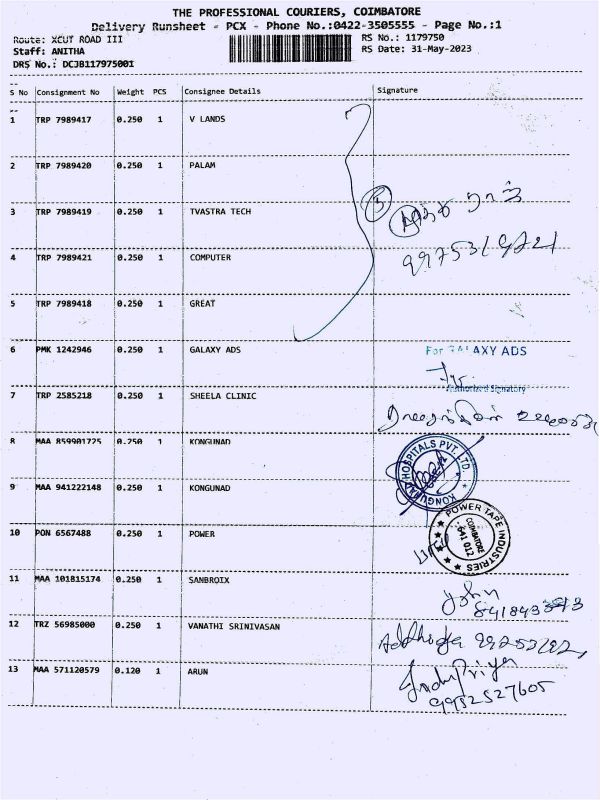 THE PROFESSIONAL COURIERS, COIMBATORE
Delivery Runsheet - PCX - Phone No.:0422-3505555 - Page No.:1
Route: XCUT ROAD III
Staff: ANITHA
DRS No.: DCJB117975001
RS No.: 1179750
RS Date: 31-May-2023
S No Consignment No Weight PCS Consignee Details Signature
1 TRP 7989417 0.250 1 V LANDS
2 TRP 7989420 0.250 1 PALAM
3 TRP 7989419 0.250 1 TVASTRA TECH
5
4 TRP 7989421 0.250 1 COMPUTER
5 TRP 7989418 0.250 1 GREAT
6 PMK 1242946 0.250 1 GALAXY ADS For GALAXY ADS
Authorised Signatory
7 TRP 2585218 0.250 1 SHEELA CLINIC
8 MAA 859901725 0.250 1 KONGUNAD
KONGUNAD HOSPITALS PVT. LTD.
9 MAA 941222148 0.250 1 KONGUNAD
10 PON 6567488 0.250 1 POWER
POWER TAPE INDUSTRIES
COIMBATORE
641 012
11 MAA 101815174 0.250 1 SANBROIX John
12 TRZ 56985000 0.250 1 VANATHI SRINIVASAN
13 MAA 571120579 0.120 1 ARUN IndhuPriya
9952527605